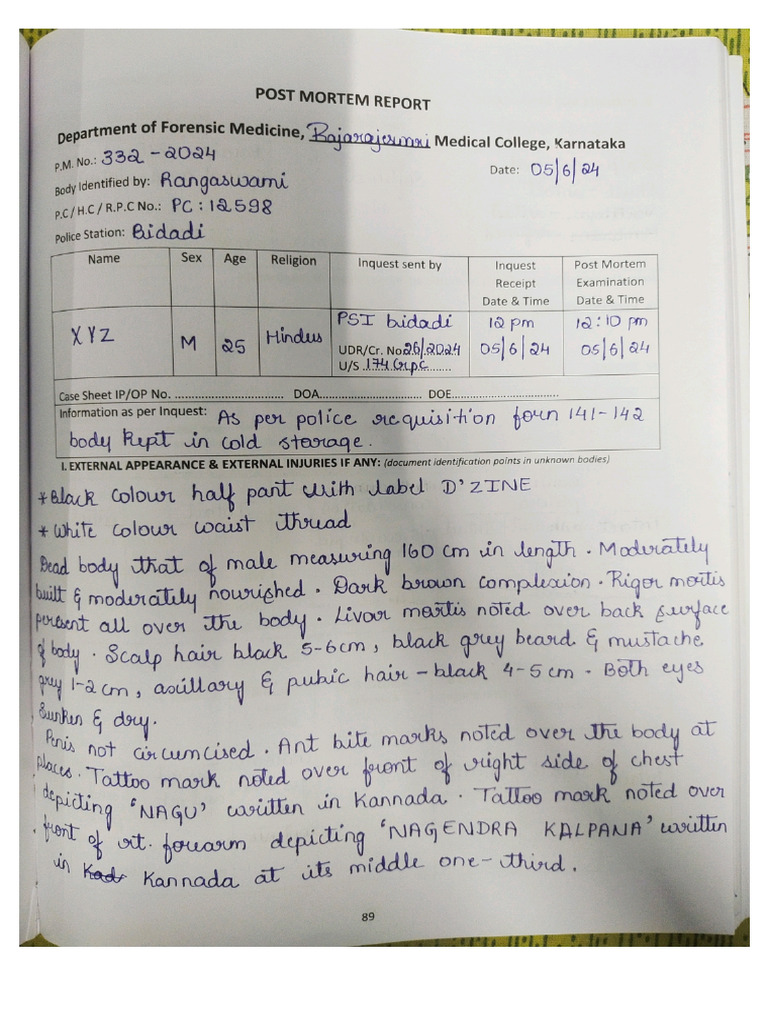 POST MORTEM REPORT
Department of Forensic Medicine, Rajarajeswari Medical College, Karnataka
P.M. No.: 332-2024 Date: 05/6/24
Body Identified by: Rangaswami
P.C / H.C / R.P.C No.: PC: 12598
Police Station: Bidadi
Name Sex Age Religion Inquest sent by Inquest Receipt Date & Time Post Mortem Examination Date & Time
XYZ M 25 Hindus PSI bidadi 12 pm 12:10 pm
UDR/Cr. No. 26/2024 05/6/24 05/6/24
U/S .174 Crpc........
Case Sheet IP/OP No. ................................ DOA.............................. DOE................................
Information as per Inquest: As per police requisition forn 141-142
body kept in cold storage.
I. EXTERNAL APPEARANCE & EXTERNAL INJURIES IF ANY: (document identification points in unknown bodies)
* Black colour half pant with label D'ZINE
* White colour waist thread
Dead body that of male measuring 160 cm in length. Moderately
built & moderately nourished. Dark brown complexion. Rigor mortis
present all over the body. Livor mortis noted over back surface
of body. Scalp hair black 5-6cm, black grey beard & mustache
grey 1-2 cm, axillary & pubic hair - black 4-5 cm. Both eyes
sunken & dry.
Penis not circumcised. Ant bite marks noted over the body at
places. Tattoo mark noted over front of right side of chest
depicting 'NAGU' written in Kannada. Tattoo mark noted over
front of rt. forearm depicting 'NAGENDRA KALPANA' written
in Kannada at its middle one-third.
89